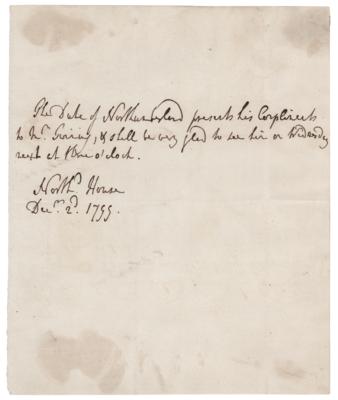 The Duke of Northumberland presents his Compliments
to Mr. & shall be very glad to see him on Wednesday
next at o'clock.
North.d House
Dec.r 2.d 1799.